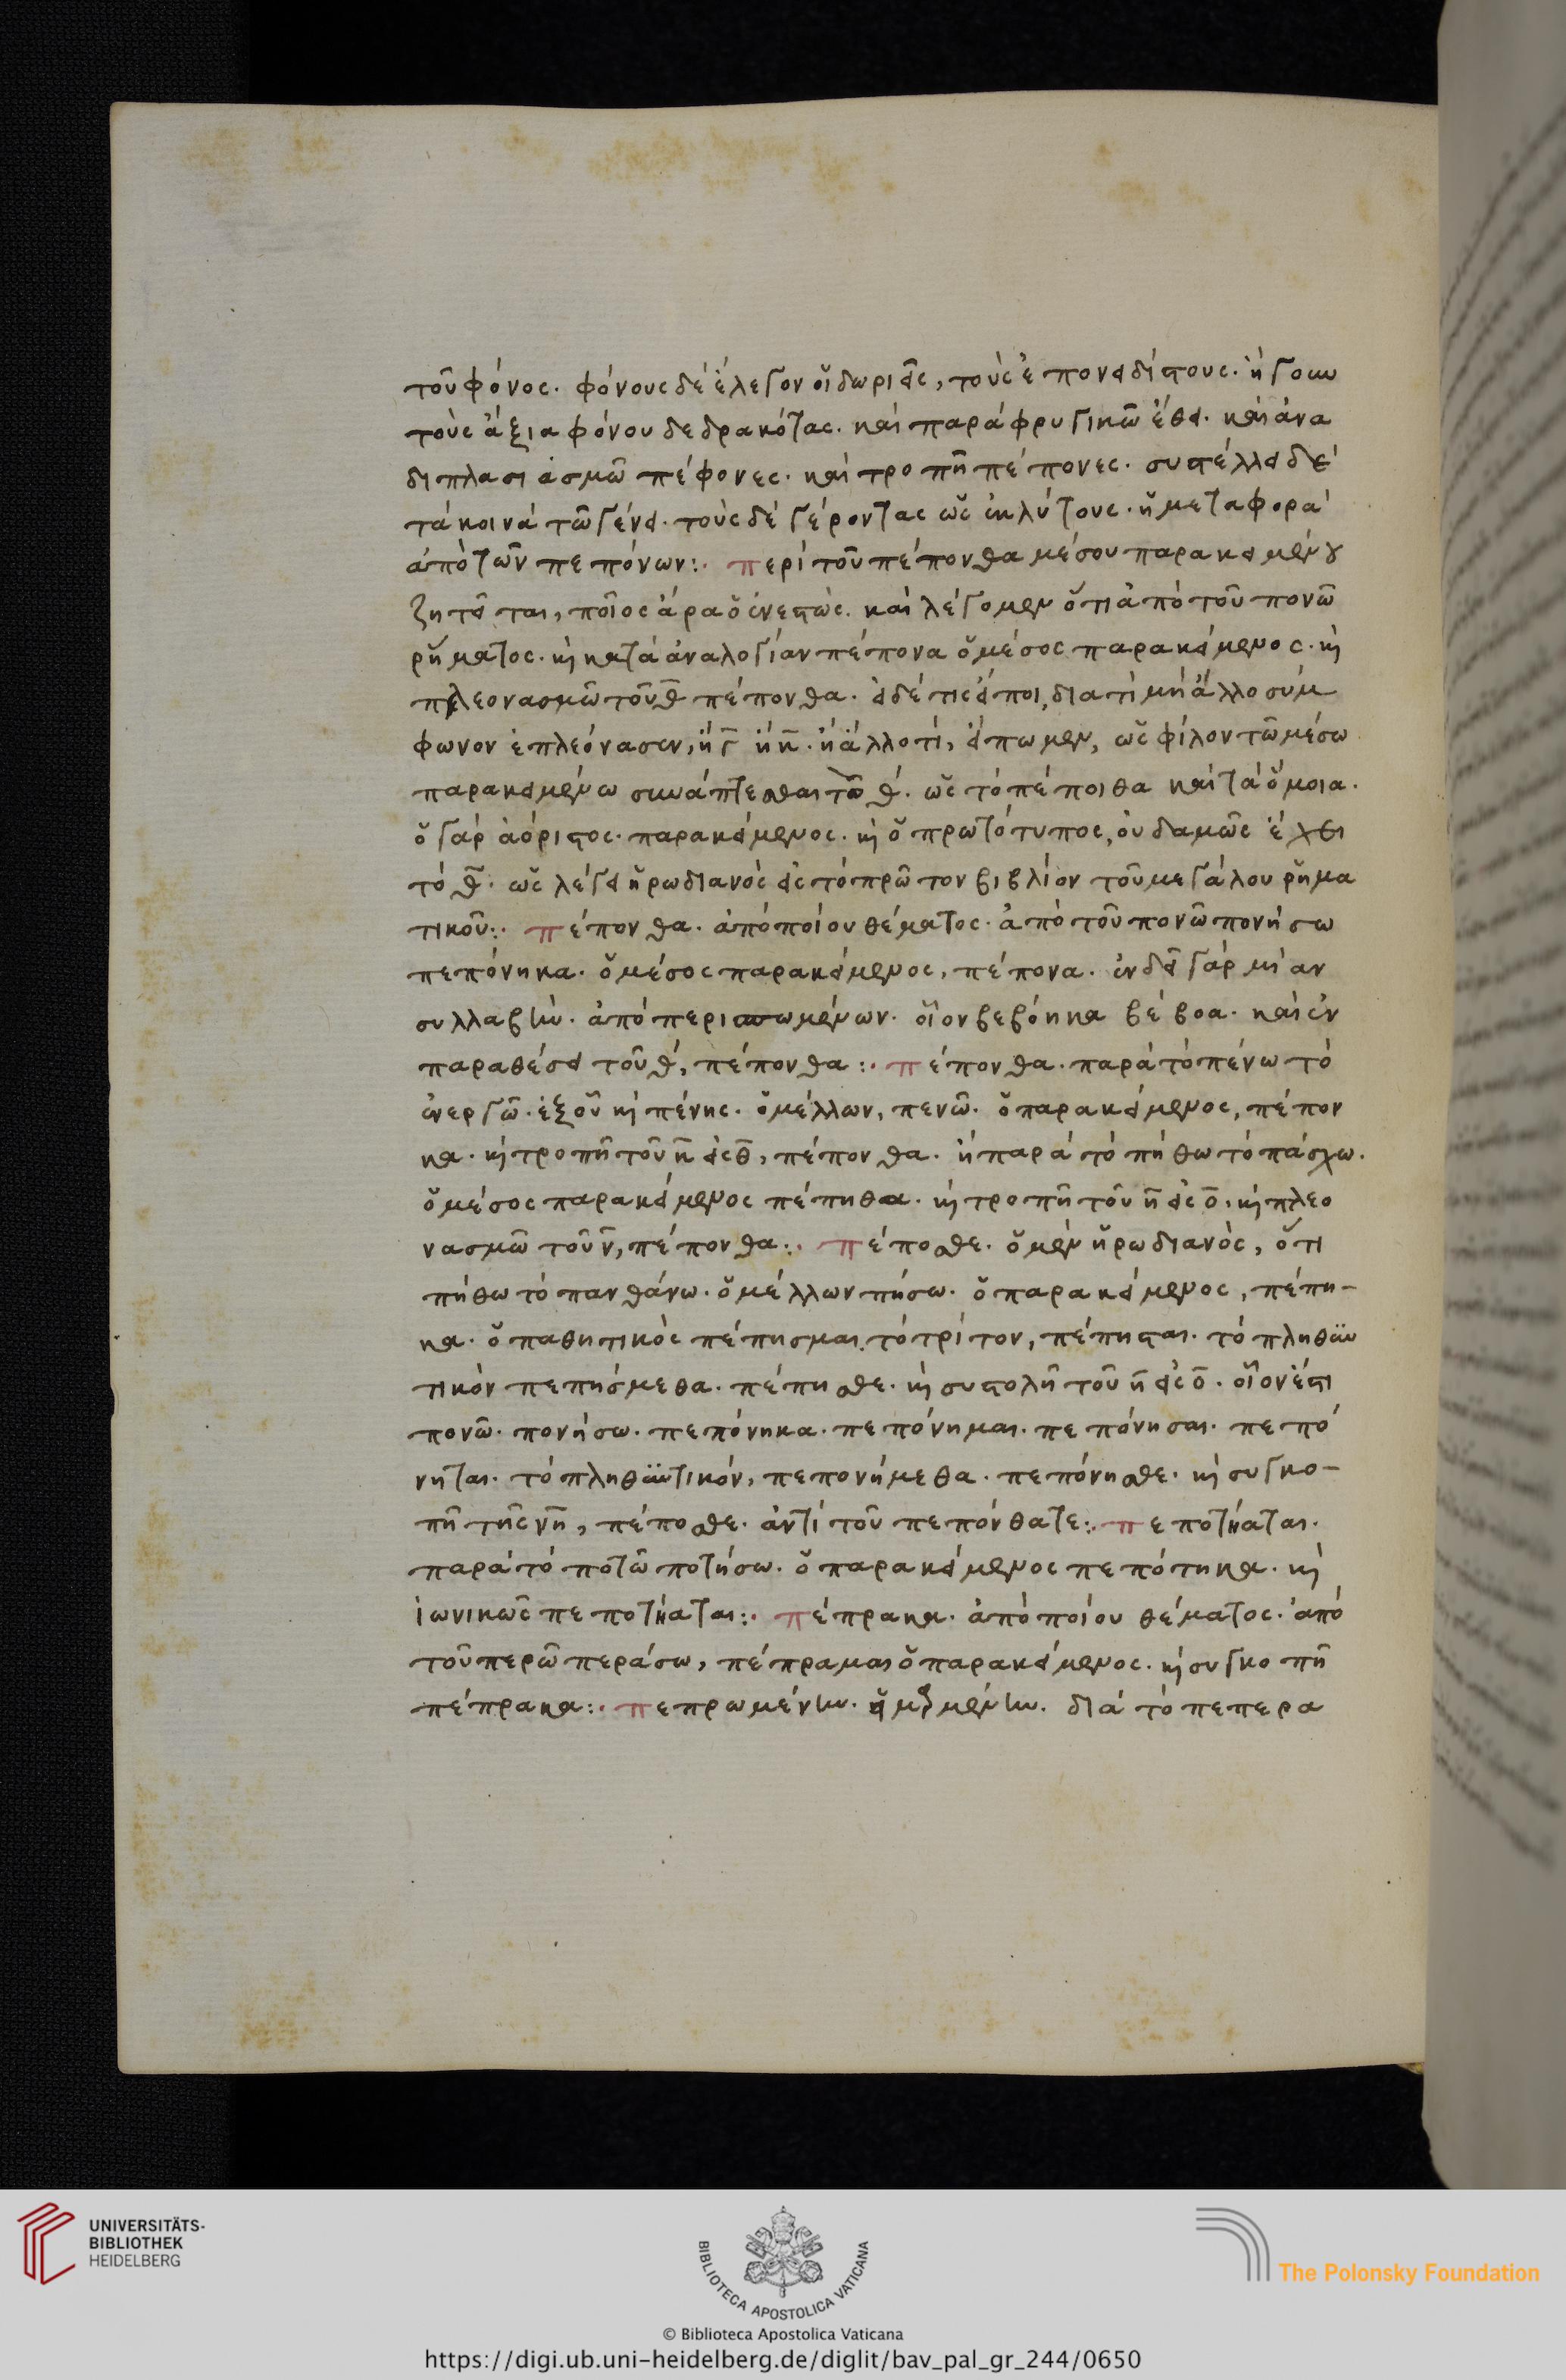 τοῦ φόνος. φόνους δὲ ἔλεγον οἱ δωριεῖς, τοὺς ἐπονειδίστους. ἤγουν
τοὺς ἄξια φόνου δεδρακότας. καὶ παρὰ φρυγικῶ ἔθει. καὶ ἀνα
διπλασιασμῶ πέφονες. καὶ τροπῆ πέπονες. συστέλλει δὲ
τὰ κοινὰ τῶ γένει. τοὺς δὲ γέροντας ὡς ἐκλύτους. ἡ μεταφορὰ
ἀπὸ τῶν πεπόνων:· περὶ τοῦ πέπονθα μέσου παρακειμένου
ζητεῖται, ποῖος ἄρα ὁ ἐνεστώς. καὶ λέγομεν ὅτι ἀπὸ τοῦ πονῶ
ῥήματος. κὶ κατὰ ἀναλογίαν πέπονα ὁ μέσος παρακείμενος. κὶ
πλεονασμῶ τοῦ θ πέπονθα. εἰ δέ τις εἴποι, διατὶ μὴ ἄλλο σύμ
φωνον ἐπλεόνασεν, ἢ γ ἢ κ. ἢ ἄλλό τί, εἴπωμεν, ὡς φίλον τῶ μέσω
παρακειμένω συνάπτεσθαι τῶ θ. ὡς τὸ πέποιθα καὶ τὰ ὅμοια.
ὁ γὰρ ἀόριστος. παρακείμενος. κὶ ὁ πρωτότυπος, οὐδαμῶς ἔχει
τὸ θ. ὡς λέγει ἡρωδιανὸς εἰς τὸ πρῶτον βιβλίον τοῦ μεγάλου ῥημα
τικοῦ:· πέπονθα. ἀπὸ ποίου θέματος. ἀπὸ τοῦ πονῶ πονήσω
πεπόνηκα. ὁ μέσος παρακείμενος, πέπονα. ἐνδεῖ γὰρ μίαν
συλλαβὴν. ἀπὸ περισπωμένων. οἷον βεβόηκα βέβοα. καὶ ἐν
παραθέσει τοῦ θ, πέπονθα:· πέπονθα. παρὰ τὸ πένω τὸ
ἐνεργῶ. ἐξ οὗ κὶ πένης. ὁ μέλλων, πενῶ. ὁ παρακείμενος, πέπον
κα. κὶ τροπῆ τοῦ κ εἰς θ, πέπονθα. ἢ παρὰ τὸ πήθω τὸ πάσχω.
ὁ μέσος παρακείμενος πέπηθα. κὶ τροπῆ τοῦ η εἰς ο, κὶ πλεο
νασμῶ τοῦ ν, πέπονθα:· πέποσθε. ὁ μὲν ἡρωδιανὸς, ὅτι
πήθω τὸ πανθάνω. ὁ μέλλων πήσω. ὁ παρακείμενος, πέπη-
κα. ὁ παθητικὸς πέπησμαι, τὸ τρίτον, πέπησται. τὸ πληθυν
τικὸν πεπήσμεθα. πέπησθε. κὶ συστολῆ τοῦ η εἰς ο. οἷον ἐστι
πονῶ. πονήσω. πεπόνηκα. πεπόνημαι. πεπόνησαι. πεπό
νηται. τὸ πληθυντικόν, πεπονήμεθα. πεπόνησθε. κὶ συγκο-
πῆ τῆς νη, πέποσθε. ἀντὶ τοῦ πεπόνθατε:· πεποτήαται.
παρὰ τὸ ποτῶ ποτήσω. ὁ παρακείμενος πεπότηκα. κὶ
ἰωνικῶς πεποτήαται:· πέπρακα. ἀπὸ ποίου θέματος. ἀπὸ
τοῦ περῶ περάσω, πέπραμαι ὁ παρακείμενος. κὶ συγκοπῆ
πέπρακα:· πεπρωμένην. διὰ τὸ πεπερα
UNIVERSITÄTS-
BIBLIOTHEK
HEIDELBERG
BIBLIOTECA APOSTOLICA VATICANA
The Polonsky Foundation
© Biblioteca Apostolica Vaticana
https://digi.ub.uni-heidelberg.de/diglit/bav_pal_gr_244/0650